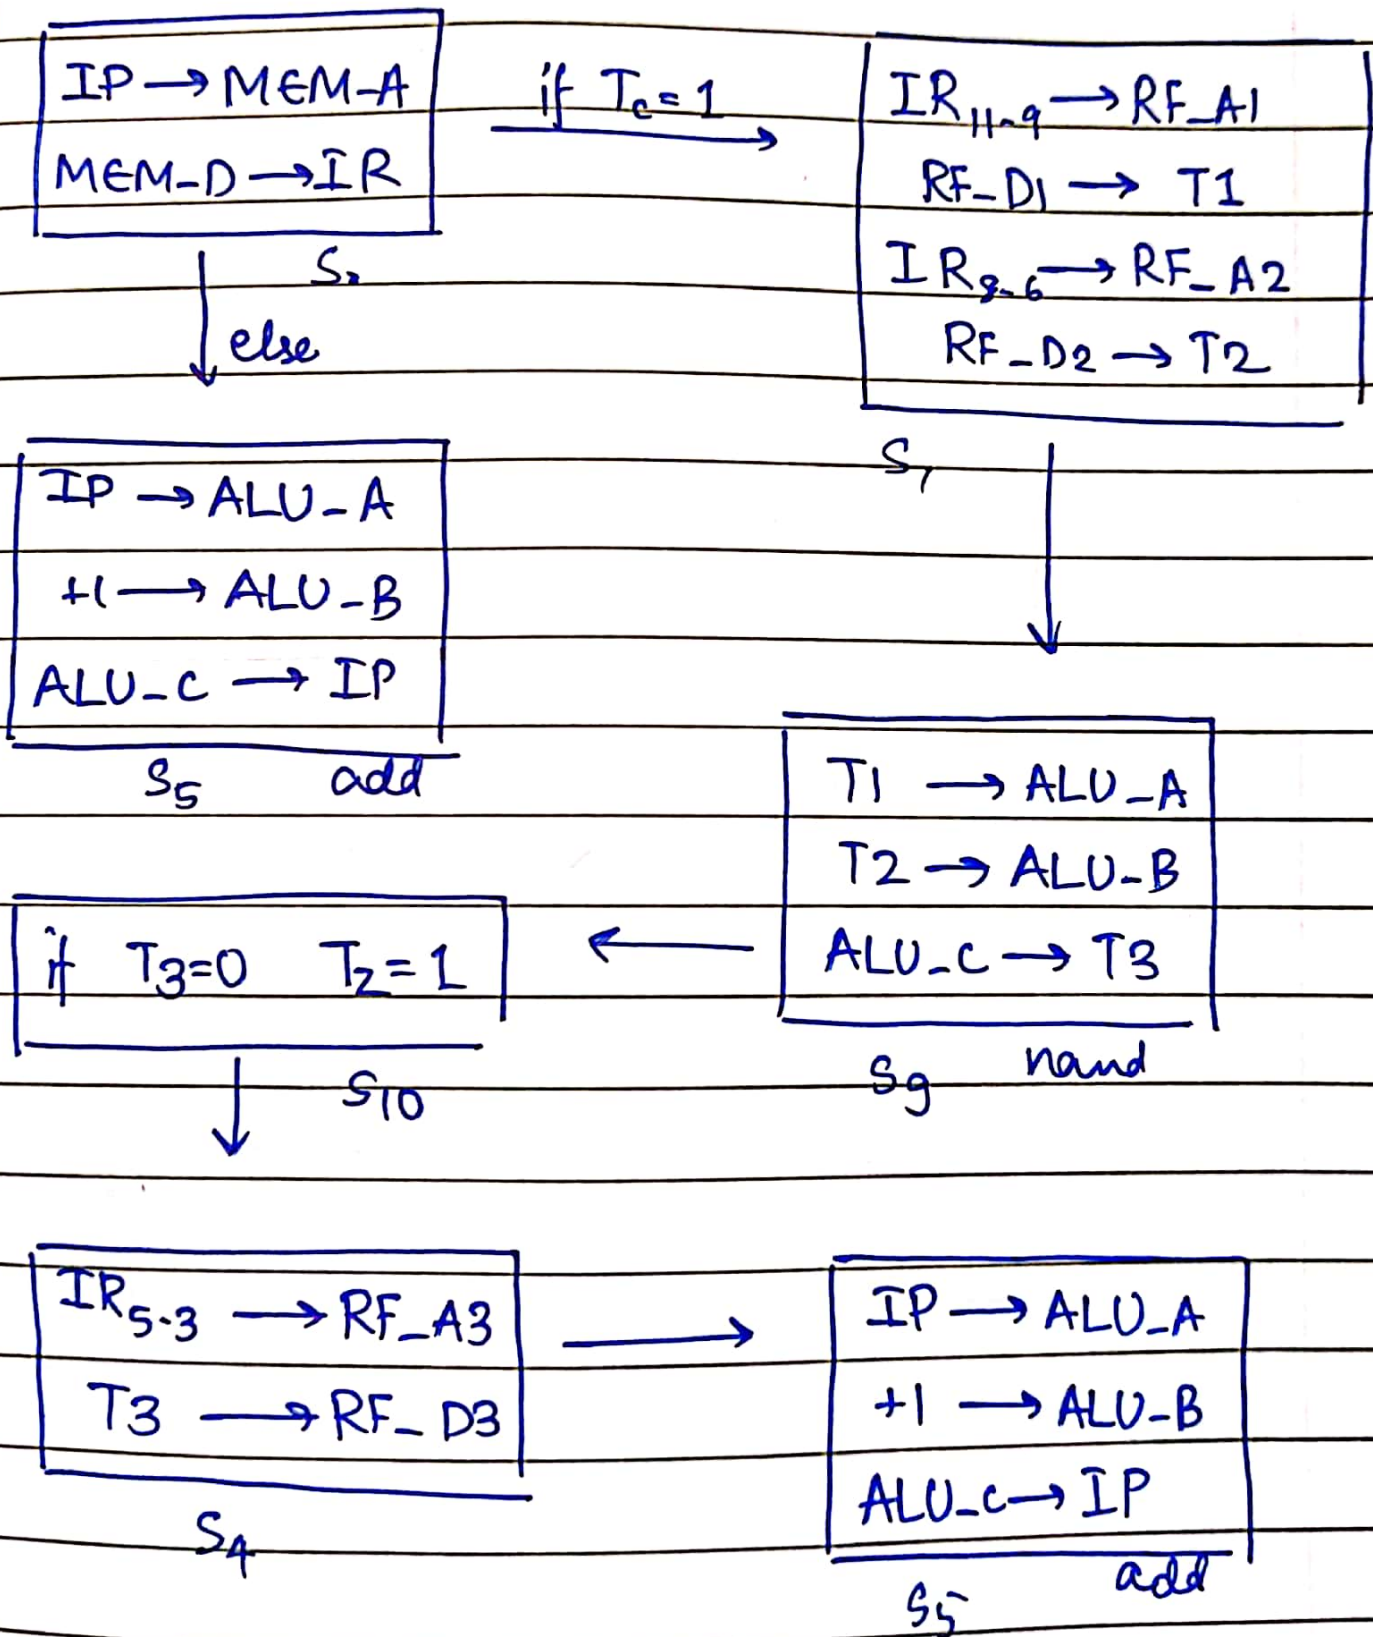 IP → MEM-A
MEM-D → IR
if Tc = 1
IR11-9 → RF_A1
RF-D1 → T1
IR8-6 → RF_A2
RF_D2 → T2
else
S1
IP → ALU_A
+1 → ALU_B
ALU_C → IP
S5 add
T1 → ALU_A
T2 → ALU_B
ALU_C → T3
S9 nand
if T3=0 Tz=1
S10
IR5-3 → RF_A3
T3 → RF_D3
S4
IP → ALU_A
+1 → ALU_B
ALU_C → IP
S5 add